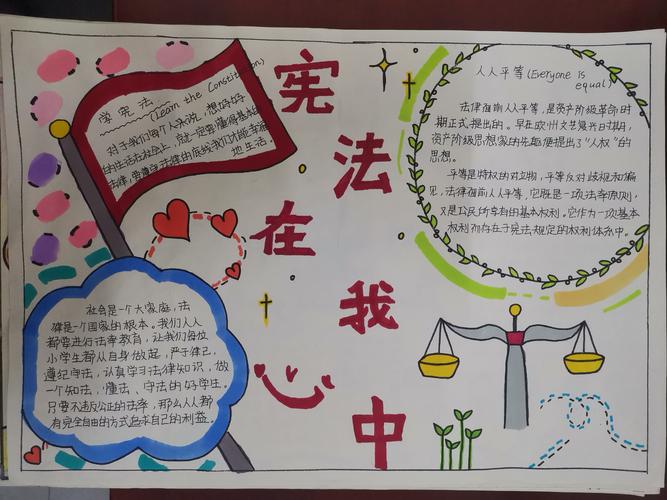 宪法在我心中
学宪法
(Learn the Constitution)
对于我们每个人来说，想好好
的生活在社会上，就一定要懂得基本的
法律，要遵守法律的底线我们才能幸福
地生活。
人人平等(Everyone is
equal)
法律面前人人平等，是资产阶级革命时
期正式提出的。早在欧州文艺复兴时期，
资产阶级思想家的先驱便提出了"人权"的
思想。
平等是特权的对立物，平等反对歧视和偏
见，法律面前人人平等，它既是一项法律原则，
又是公民所享有的基本权利。它作为一项基本
权利而存在于宪法规定的权利体系中。
社会是一个大家庭，法
律是一个国家的根本。我们人人
都要进行法率教育，让我们每位
小学生都从自身做起，严于律己，
遵纪守法，认真学习法律知识，做
一个知法，懂法、守法的好学生。
只要不违反公正的法率，那么人人都
有完全自由的方式追求自己的利益。